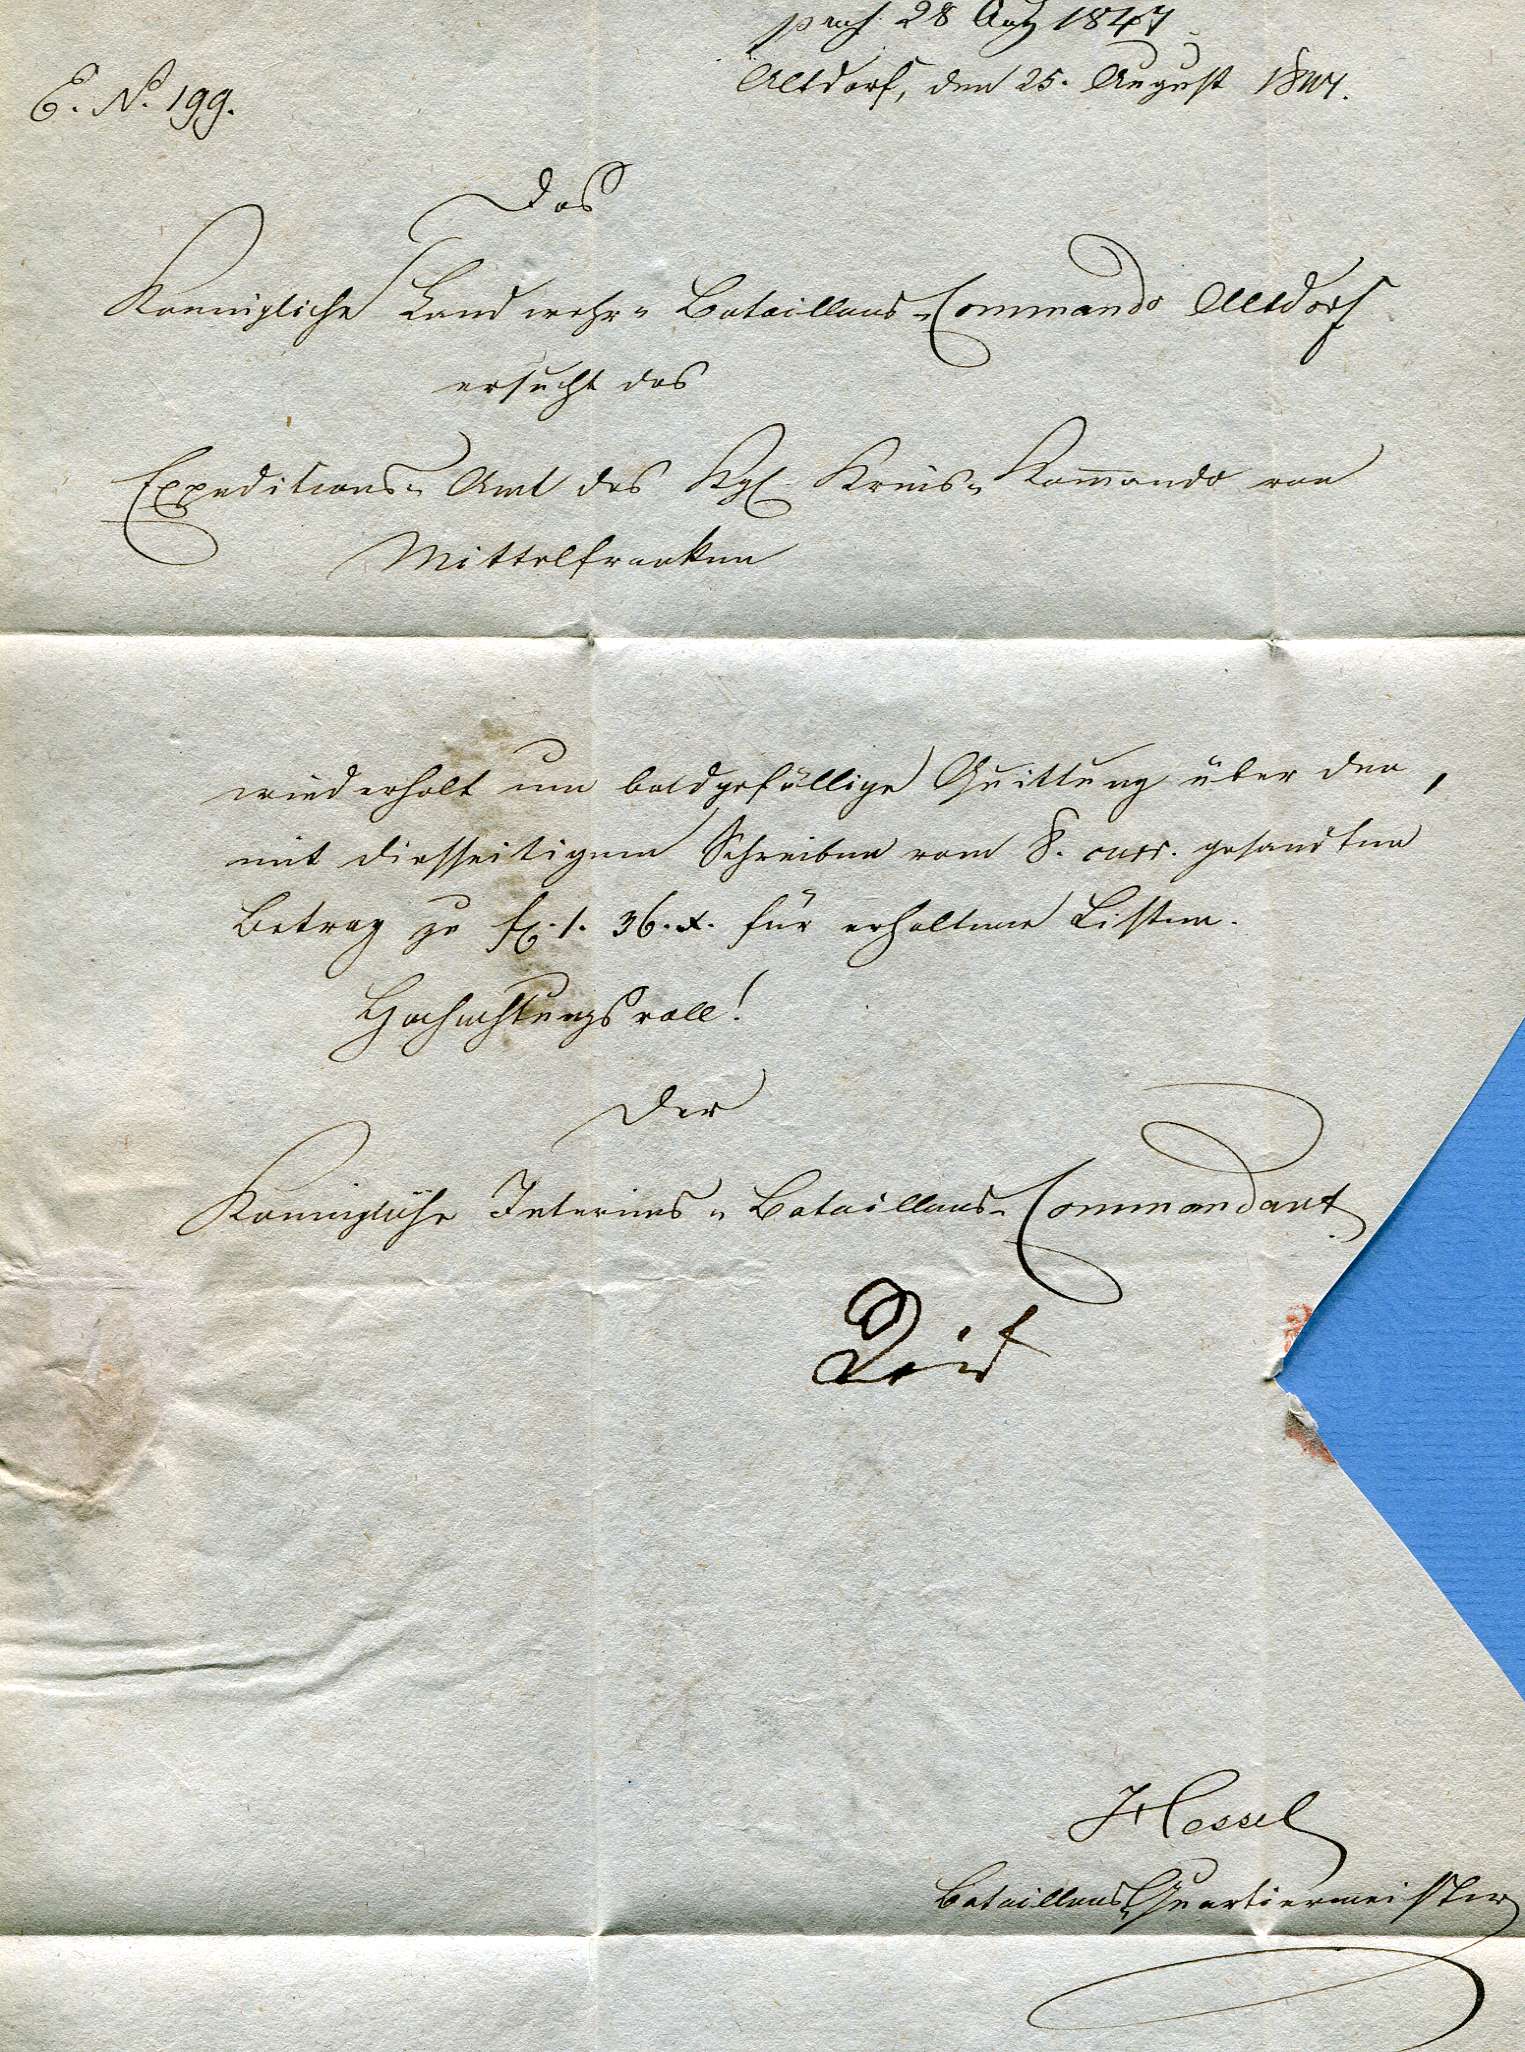 praes. 28 Aug 1847
Altdorf, den 25. August 1847.
E. No. 199.
Das
Koenigliche Landwehr- Bataillons-Commando Altdorf
ersucht das
Expeditions- Amt des Kgl. Kreis- Kom̅ando von
Mittelfranken
wiederholt um baldgefällige Quittung über den,
mit diesseitigem Schreiben vom 8. curr. gesandten
Betrag zu fl. 1. 36. x. für erhaltene Listen.
Hochachtungsvoll!
Der
Koenigliche Interims- Bataillons- Commandant.
Hessel
Bataillons-Quartiermeister